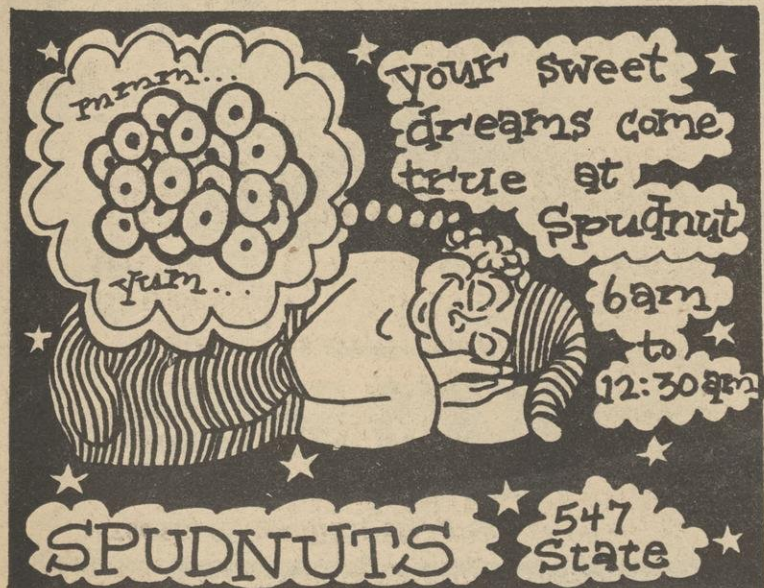 mmmm...
yum...
your sweet
dreams come
true at
Spudnut
6am
to
12:30am
SPUDNUTS
547
State